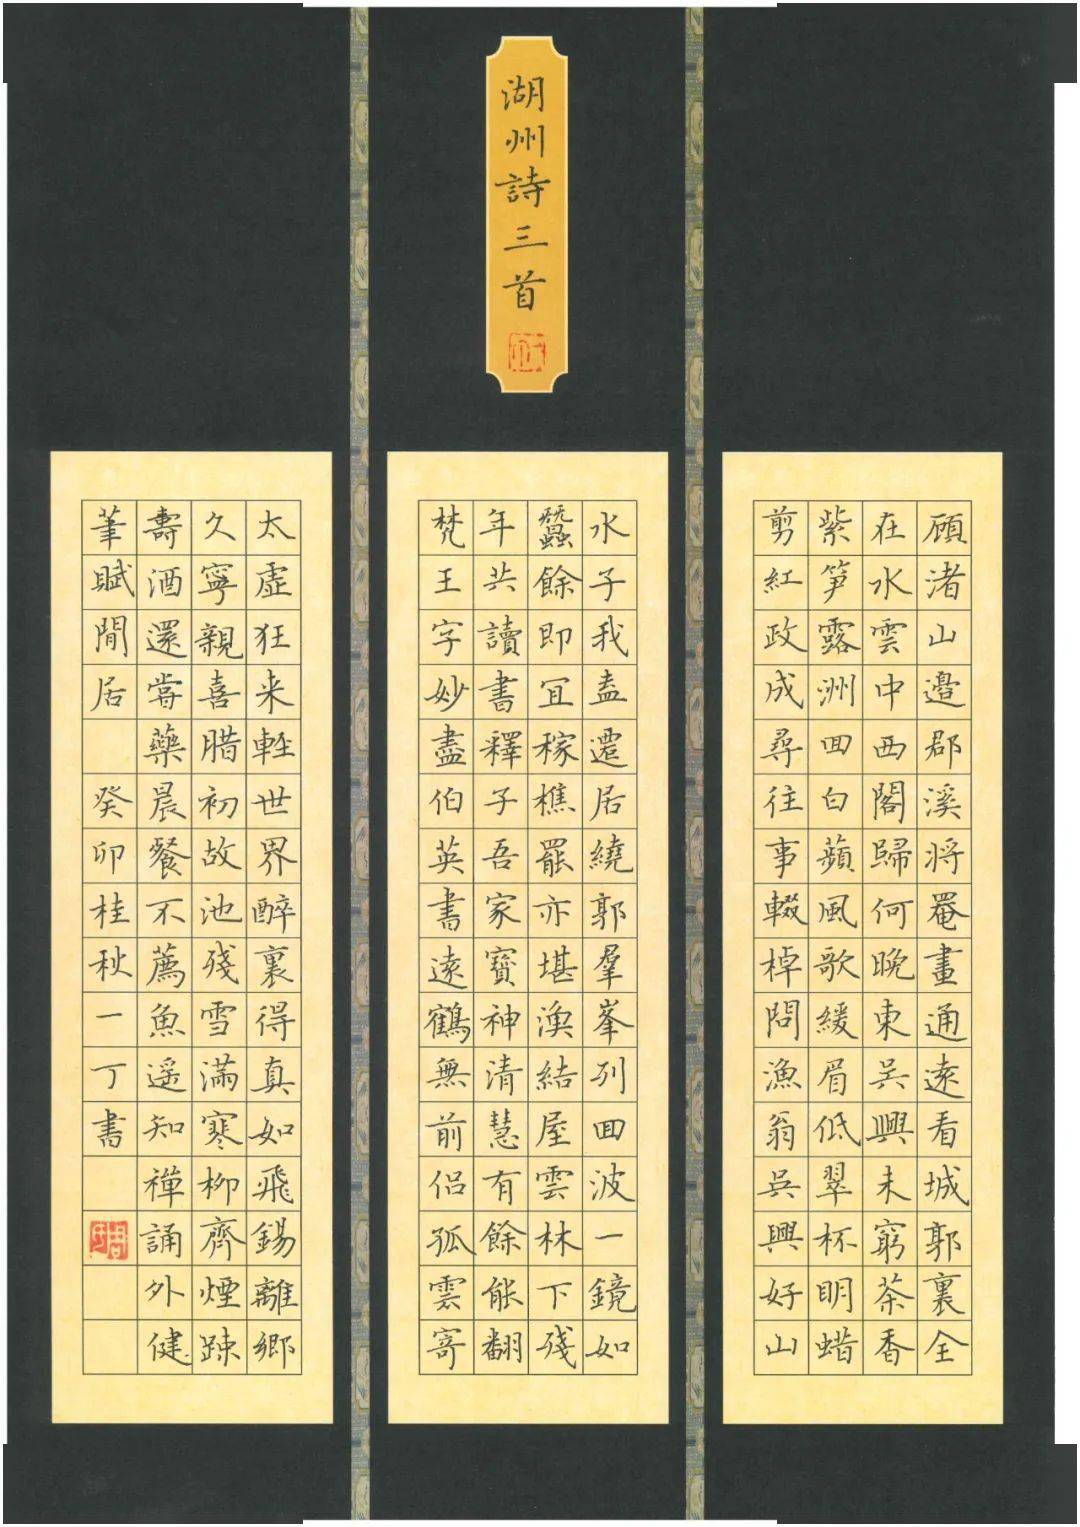 湖州詩三首
顾渚山邊郡溪将罨畫通遠看城郭裏全
在水雲中西閣歸何晚東吴興未窮茶香
紫笋露洲回白蘋風歌緩眉低翠杯明蜡
剪紅政成尋往事輟棹問漁翁吴興好山
水子我盍遷居繞郭羣峯列回波一鏡如
蠶餘即宜稼樵罷亦堪漁結屋雲林下殘
年共讀書釋子吾家寶神清慧有餘能翻
梵王字妙盡伯英書遠鶴無前侣孤雲寄
太虚狂来輕世界醉裏得真如飛錫離鄉
久寧親喜腊初故池殘雪滿寒柳齊煙疎
壽酒還嘗藥晨餐不薦魚遥知禪誦外健
筆賦閒居 癸卯桂秋一丁書